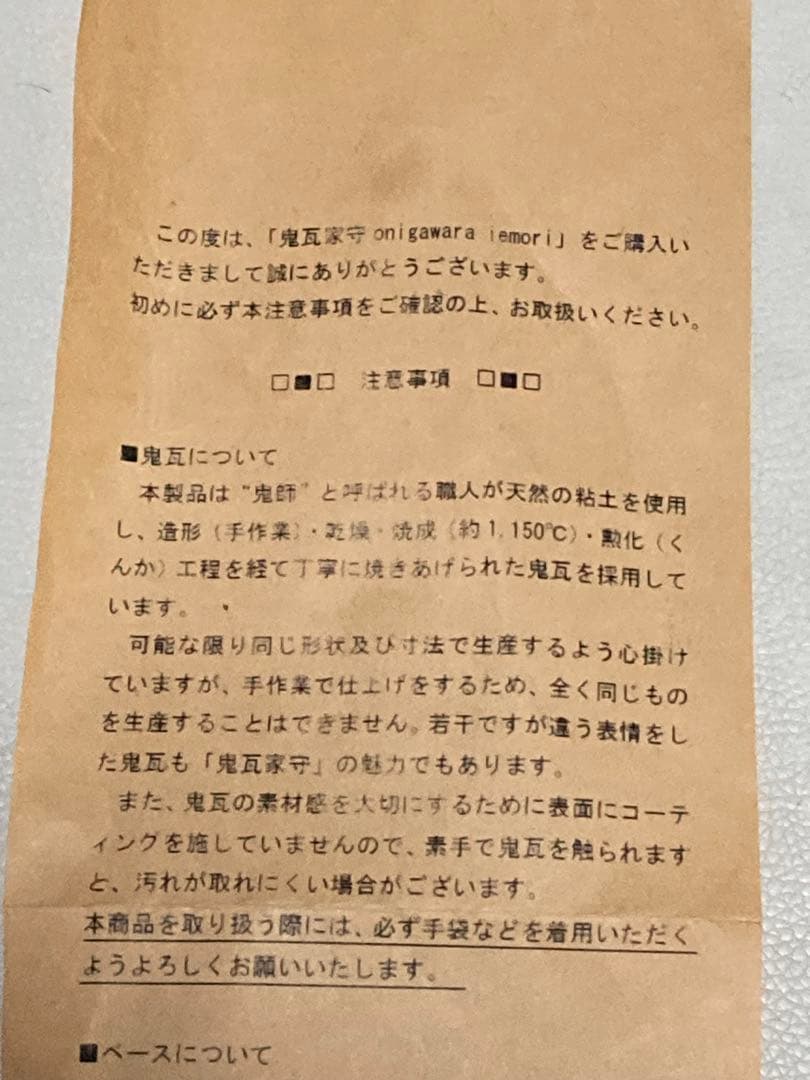 この度は、「鬼瓦家守 onigawara iemori」をご購入い
ただきまして誠にありがとうございます。
初めに必ず本注意事項をご確認の上、お取扱いください。
□■□ 注意事項 □■□
■鬼瓦について
本製品は“鬼師”と呼ばれる職人が天然の粘土を使用
し、造形（手作業）・乾燥・焼成（約1,150℃）・勲化（く
んか）工程を経て丁寧に焼きあげられた鬼瓦を採用して
います。
可能な限り同じ形状及び寸法で生産するよう心掛け
ていますが、手作業で仕上げをするため、全く同じもの
を生産することはできません。若干ですが違う表情をし
た鬼瓦も「鬼瓦家守」の魅力でもあります。
また、鬼瓦の素材感を大切にするために表面にコーテ
ィングを施していませんので、素手で鬼瓦を触られます
と、汚れが取れにくい場合がございます。
本商品を取り扱う際には、必ず手袋などを着用いただく
ようよろしくお願いいたします。
■ベースについて